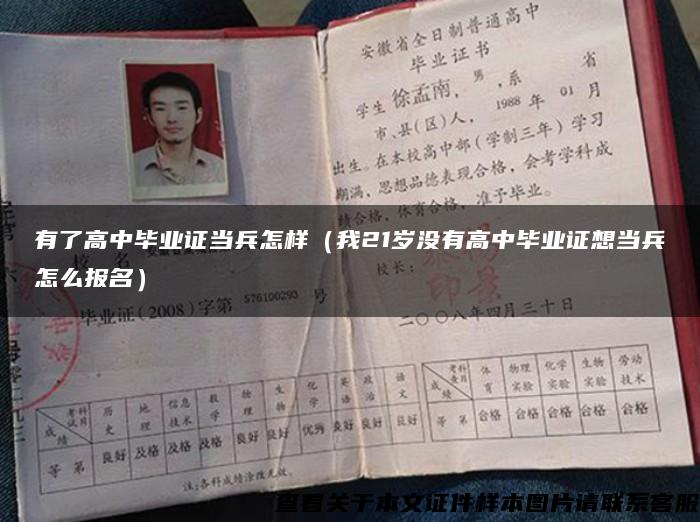 安徽省全日制普通高中
毕业证书
学生徐孟南，男，系 省
市、县(区)人， 1988 年 01 月
出生。在本校高中部（学制三年）学习
期满，思想品德表现合格，会考学科成
绩合格，体育合格，准予毕业。
有了高中毕业证当兵怎样（我21岁没有高中毕业证想当兵
怎么报名）
校长：
毕业证(2008)字第 576100293 号
二〇〇八年四月三十日
考试科目 历史 地理 信息技术 数学 物理 生物 化学 英语 政治 语文
成绩
等第 良好 及格 及格 及格 良好 良好 优秀 良好 良好 良好
注:各科成绩涂改无效。
考查科目 体育 物理实验 化学实验 生物实验 劳动技术
成绩
等第 合格 合格 合格 合格 合格
查看关于本文证件样本图片请联系客服